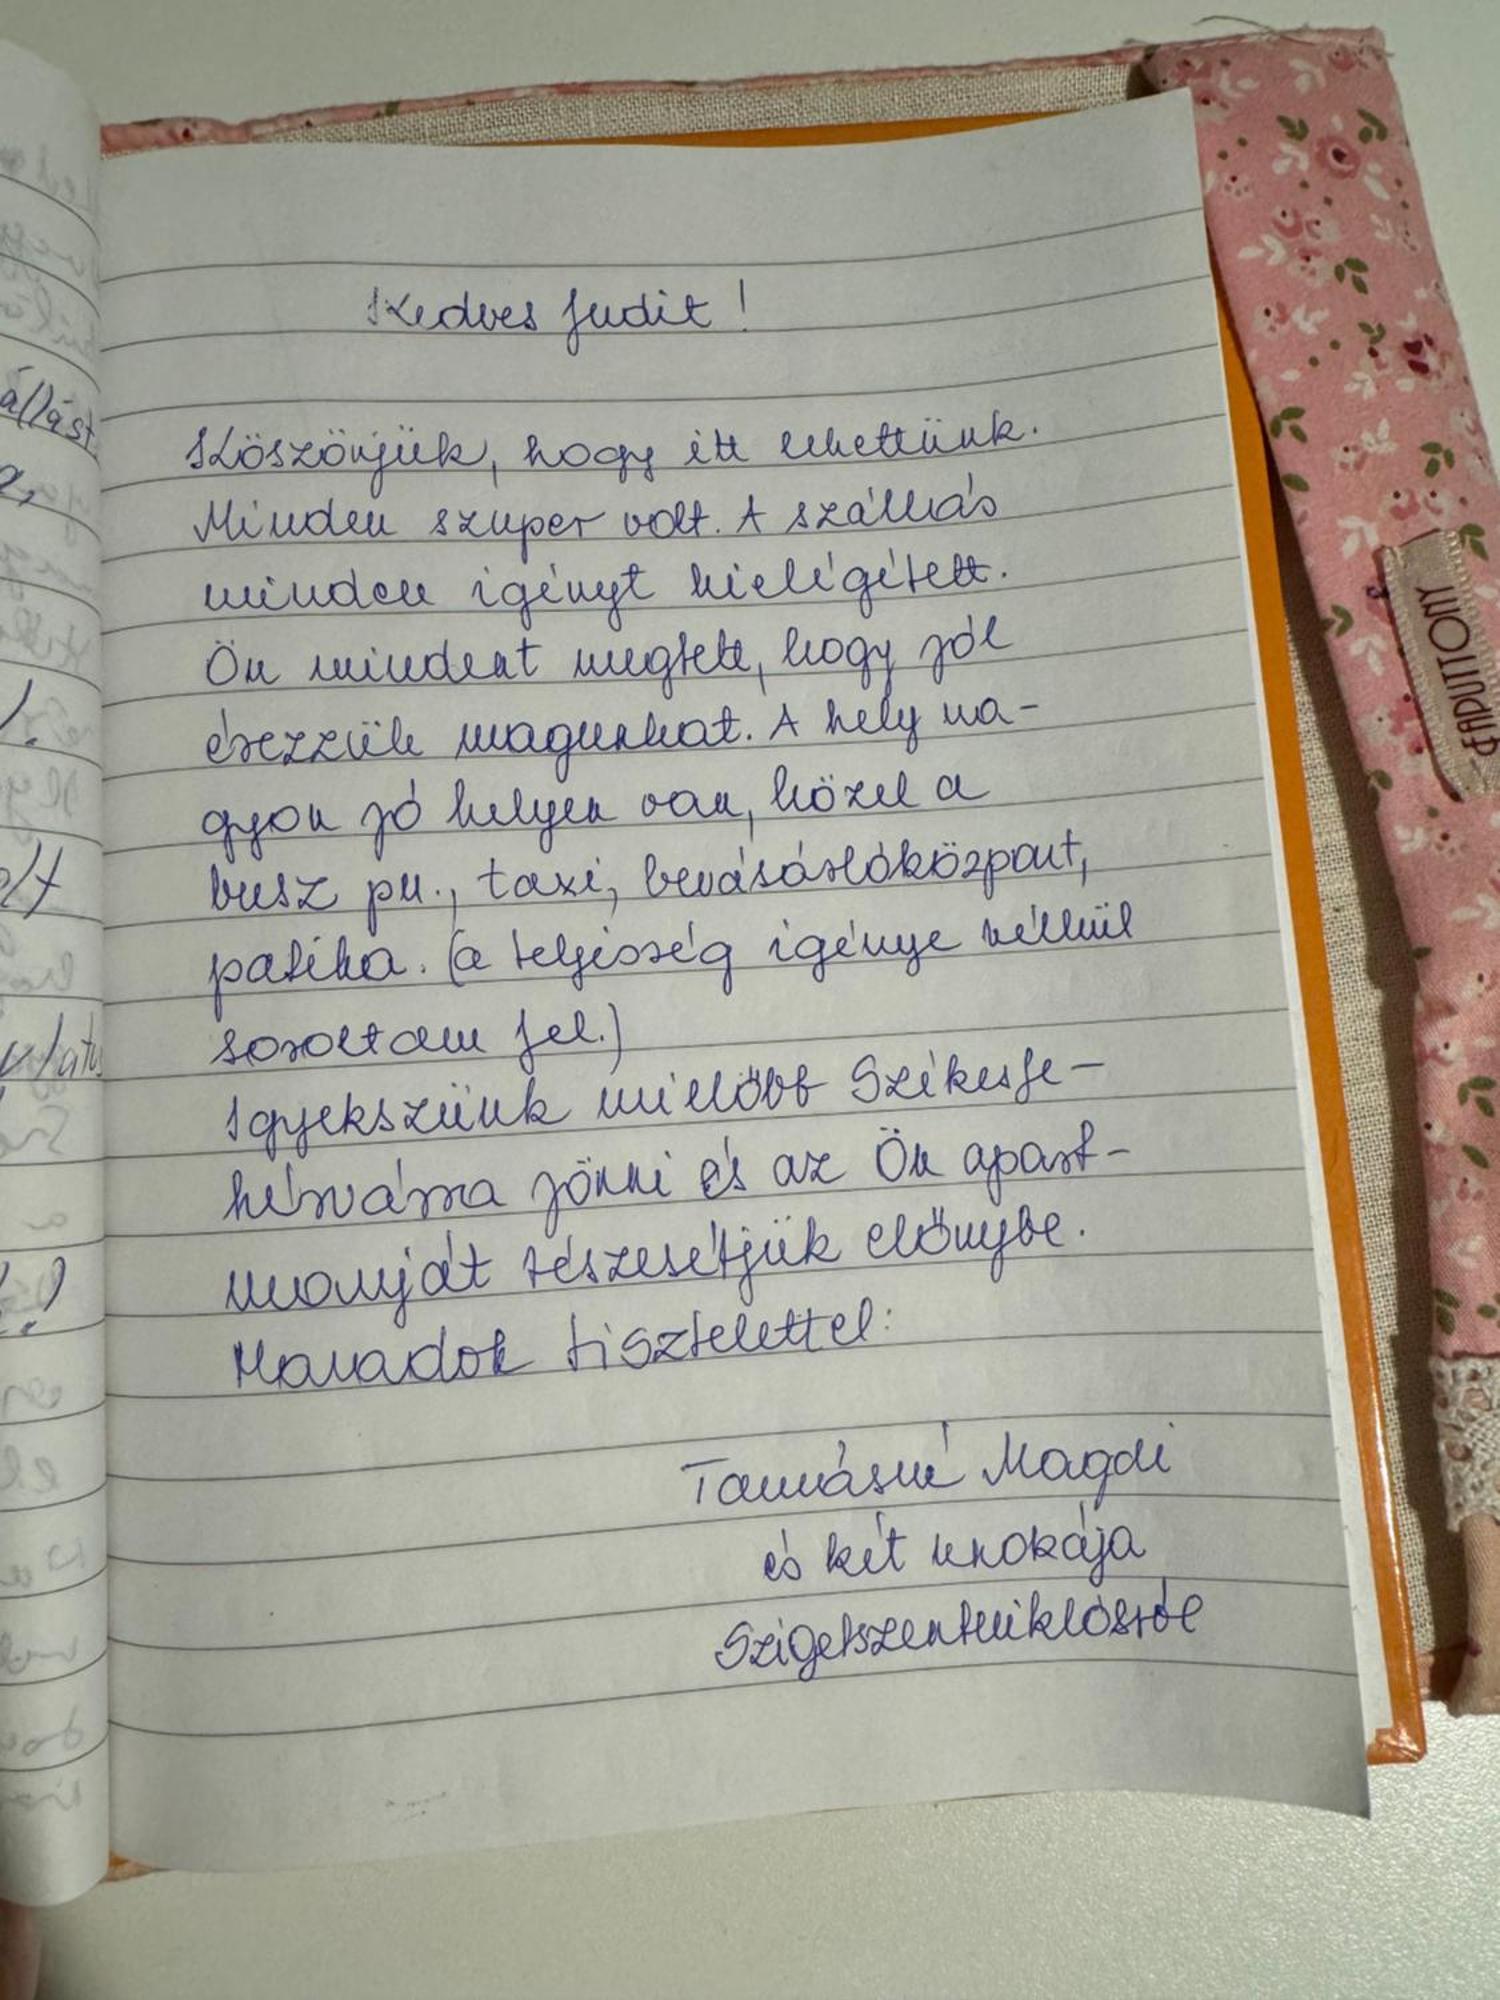 Kedves Judit!
Köszönjük, hogy itt lehettünk.
Minden szuper volt. A szállás
minden igényt kielégített.
Ön mindent megtett, hogy jól
érezzük magunkat. A hely na-
gyon jó helyen van, közel a
busz pu., taxi, bevásárlóközpont,
patika. (a teljesség igénye nélkül
soroltam fel.)
Igyekszünk mielőbb Székesfe-
hérvárra jönni és az Ön apart-
manját részesítjük előnybe.
Maradok tisztelettel:
Tamásné Magdi
és két unokája
Szigetszentmiklósról
állást
FAPUTTONY